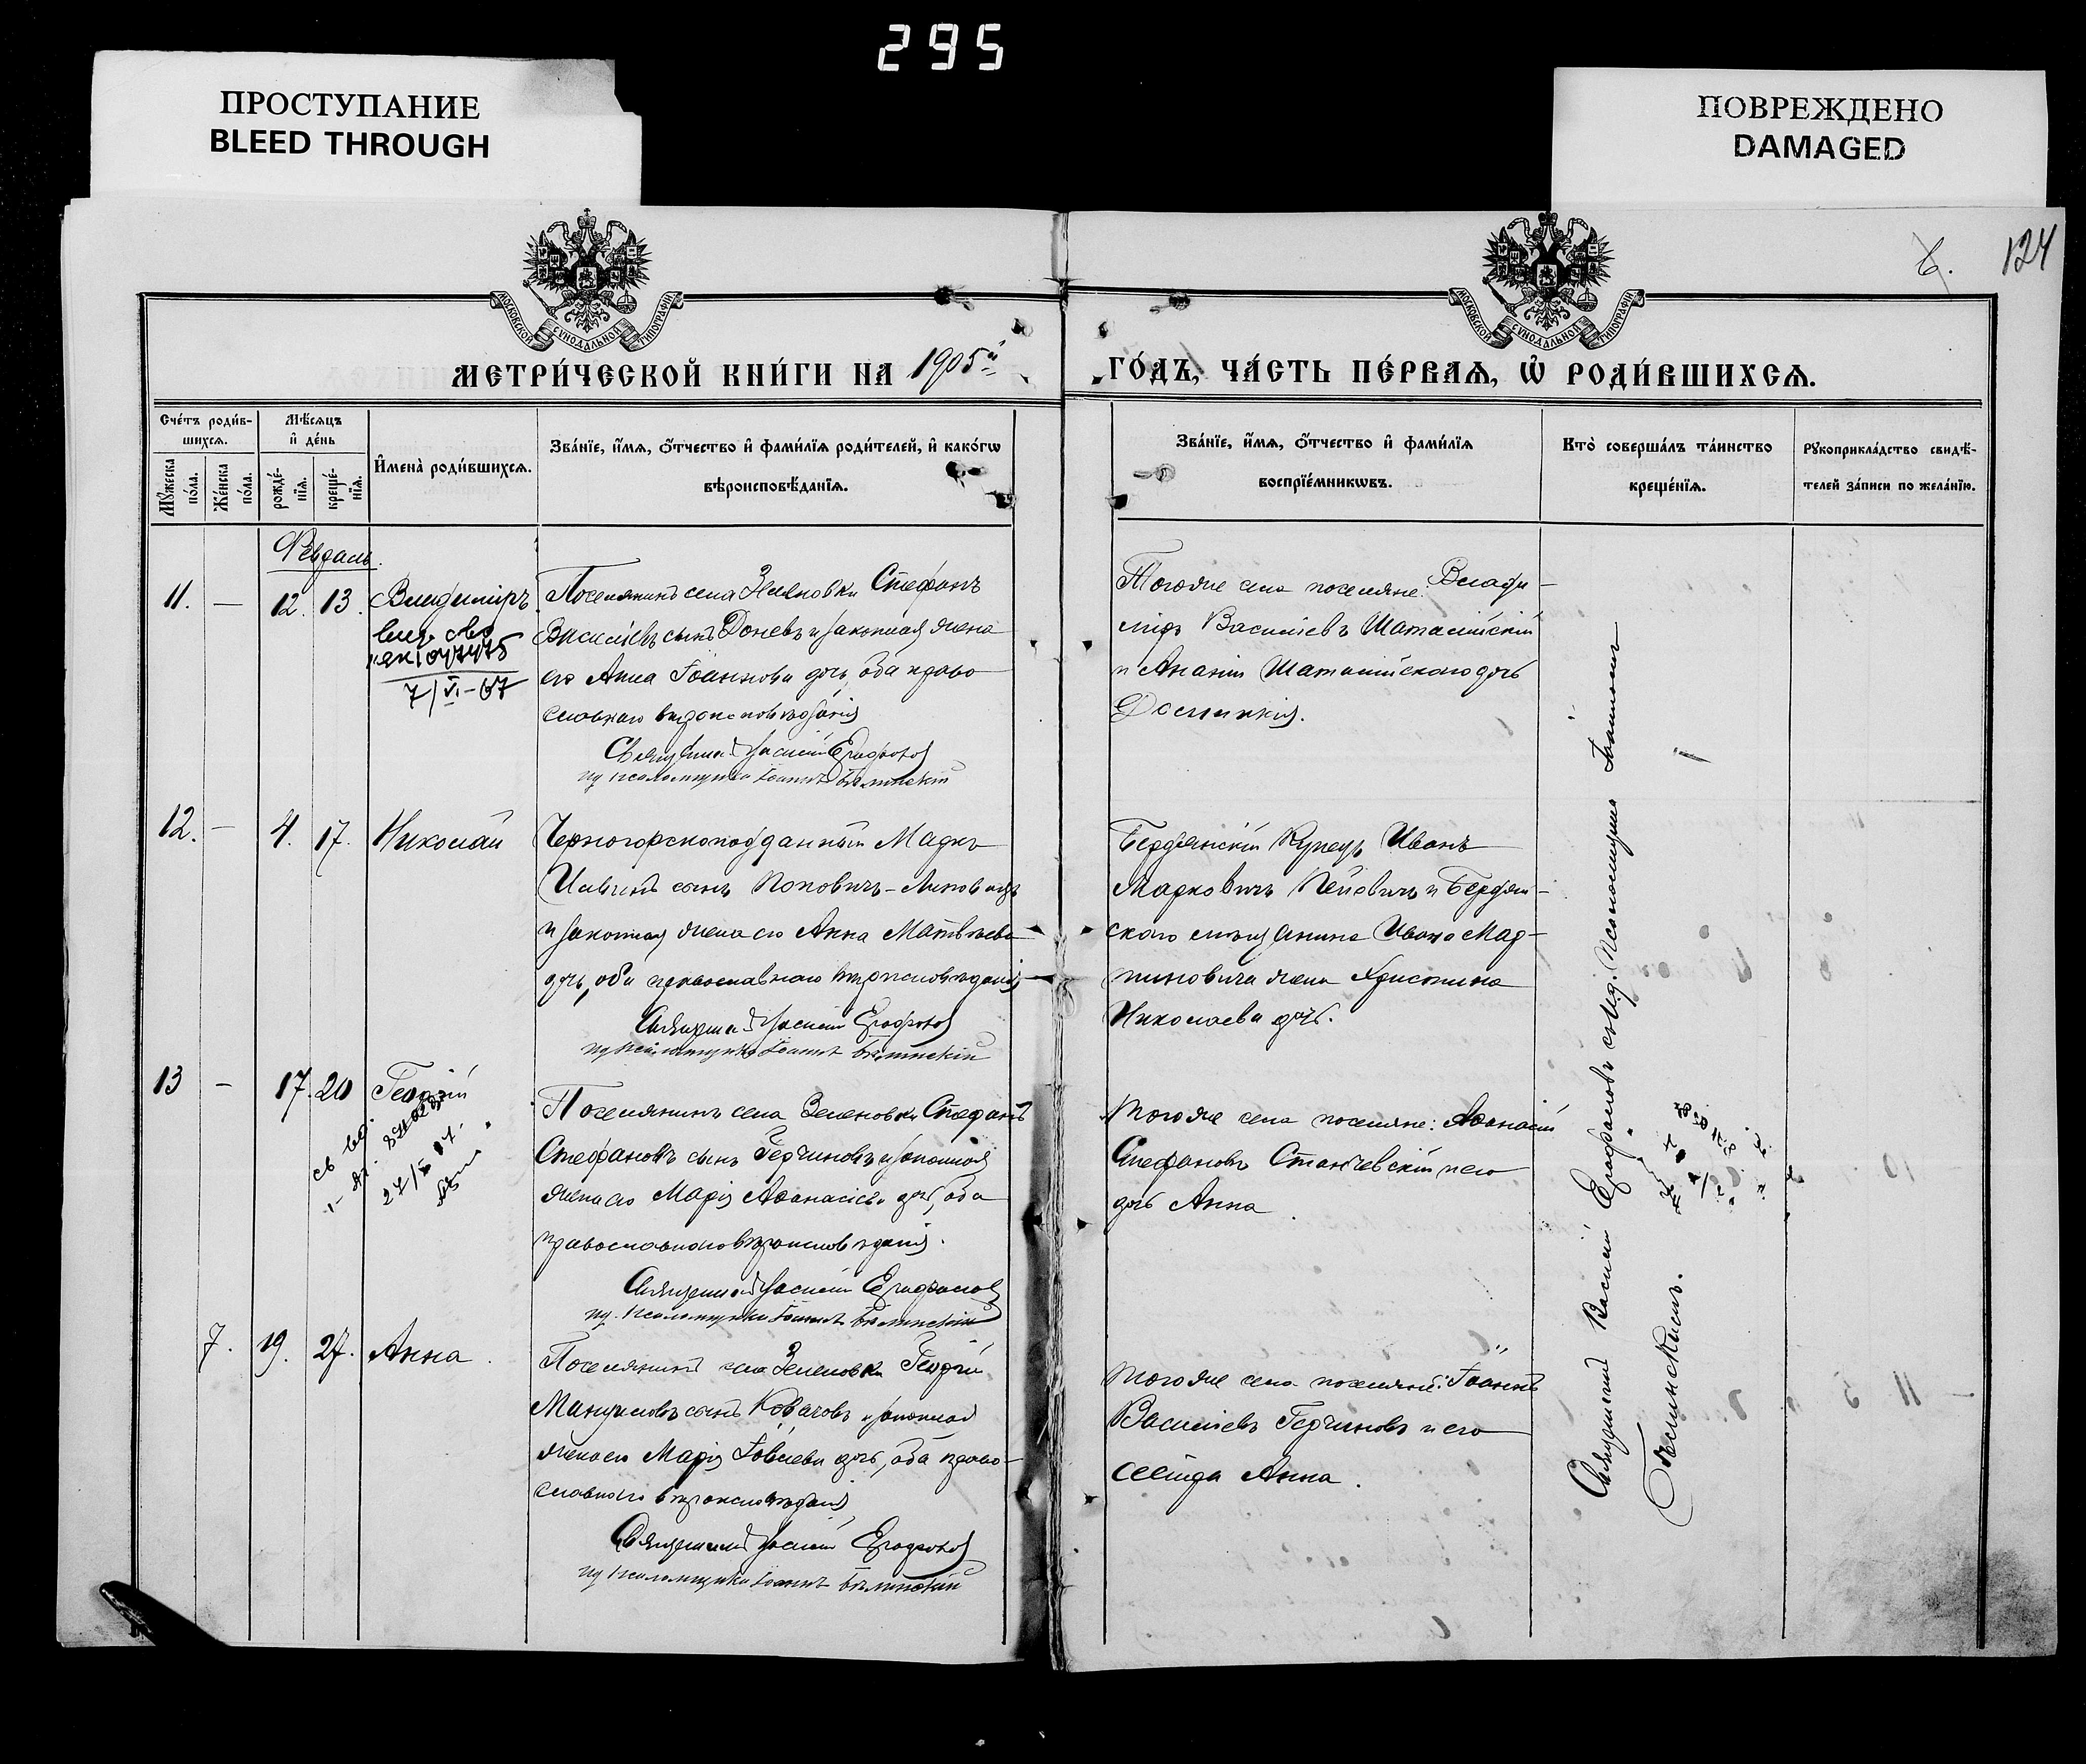 295
ПРОСТУПАНИЕ
BLEED THROUGH
ПОВРЕЖДЕНО
DAMAGED
124
6.
МОСКОВСКОЙ СУНОДАЛЬНОЙ ТИПОГРАФІИ
МОСКОВСКОЙ СУНОДАЛЬНОЙ ТИПОГРАФІИ
МЕТРИ́ЧЕСКОЙ КНИ́ГИ НА 1905й
ГО́ДЪ, ЧА́СТЬ ПЕ́РВАѦ, Ѽ РОДИ́ВШИХСѦ.
Сче́тъ роди́в-
шихсѧ.
Мꙋжеска по́ла.
Же́нска по́ла.
Мѣ́сѧцъ
и҆ де́нь
рожде́-
нїѧ.
креще́-
нїѧ.
И҆мена̀ роди́вшихсѧ.
Зва́нїе, и҆́мѧ, ѻ҆́тчество и҆ фами́лїѧ роди́телей, и҆ како́гѡ
вѣроисповѣ́данїѧ.
Зва́нїе, и҆́мѧ, ѻ҆́тчество и҆ фами́лїѧ
воспрїе́мникѡвъ.
Кто̀ соверша́лъ та́инство
креще́нїѧ.
Рꙋкоприкла́дство свидѣ́-
телей за́писи по жела́нїю.
Февраль.
11. — 12. 13. Владиміръ
7/VI-67
Поселянинъ села Зеленовки Стефанъ
Васильевъ сынъ Доневъ и законная жена
его Анна Іоаннова дочь, оба право
славнаго вѣроисповѣданія
Священникъ Василій Еграфовъ
Іоаннъ Бѣлинскій
Тогоже села поселяне: Влади-
міръ Васильевъ
и Ананіи дочь
12. — 4. 17. Николай
Черногорскоподданный Марко
сынъ Поповичъ-
и законная жена его Анна Матвѣева
дочь, оба православнаго вѣроисповѣданія
Священникъ Василій Еграфовъ
Іоаннъ Бѣлинскій
Бердянскій Купецъ Иванъ
Марковичъ и Бердян-
скаго мѣщанина Ивана Мар-
тиновича жена Христина
Николаева дочь.
13 — 17. 20 Георгій
Поселянинъ села Зеленовки Стефанъ
Стефановъ сынъ Герчиновъ и законная
жена его Марія Аѳанасіева дочь, оба
православнаго вѣроисповѣданія.
Священникъ Василій Еграфовъ
Іоаннъ Бѣлинскій
Тогоже села поселяне: Аѳанасій
Стефановъ Станчевскій и его
дочь Анна
7. 19. 27. Анна.
Поселянинъ села Зеленовки Георгій
Мануиловъ сынъ Ковачовъ и законная
жена его Марія дочь, оба право-
славнаго вѣроисповѣданія
Священникъ Василій Еграфовъ
Іоаннъ Бѣлинскій
Тогоже села поселяне: Іоаннъ
Васильевъ Герчиновъ и его
Анна.
Священникъ Василій Еграфовъ съ и. д. псаломщика Іоанномъ
Бѣлинскимъ.